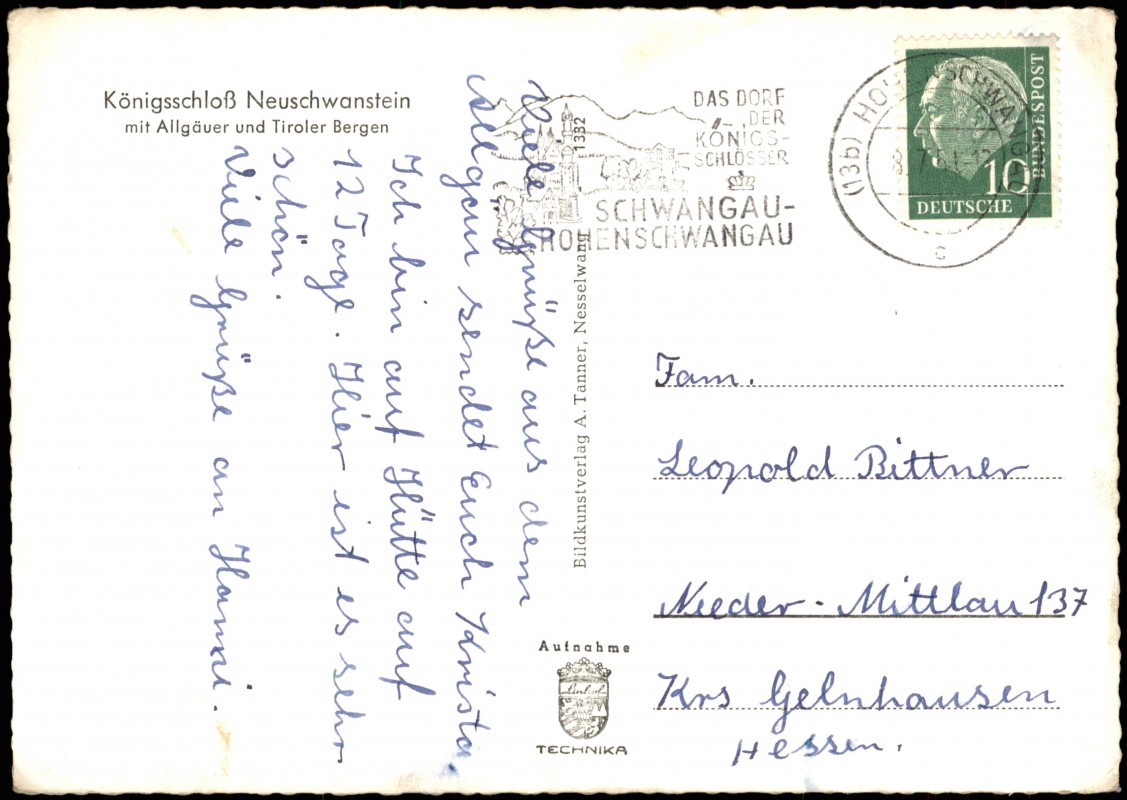 Königsschloß Neuschwanstein
mit Allgäuer und Tiroler Bergen
Viele Grüße aus dem
Allgäu sendet Euch Krista.
Ich bin auf Hütte auf
12 Tage. Hier ist es sehr
schön.
Viele Grüße an Hanni.
1332
Bildkunstverlag A. Tanner, Nesselwang
DAS DORF
DER
KÖNIGS-
SCHLÖSSER
SCHWANGAU-
HOHENSCHWANGAU
(13b)
c
BUNDESPOST
10
DEUTSCHE
Fam.
Leopold Bittner
Nieder-Mittlau 137
Krs Gelnhausen
Hessen.
Aufnahme
TECHNIKA